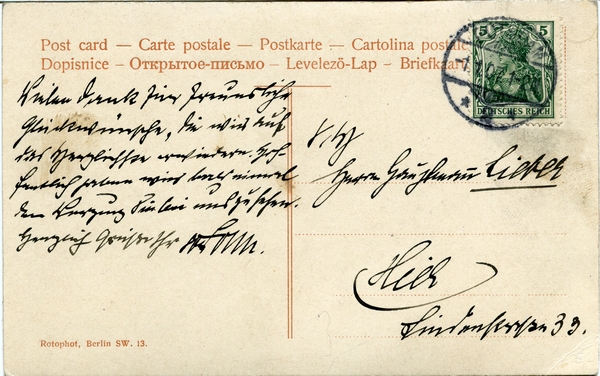 Post card — Carte postale — Postkarte — Cartolina postale
Dopisnice — Открытое-письмо — Levelező-Lap — Briefkaart
5 5
DEUTSCHES REICH
Vielen Dank für freundliche
Glückwünsche, die wir auf
das Herzlichste erwidern. Hof-
fentlich haben wir bald einmal
den Vorzug Sie bei uns zu sehen.
Herzlich grüßt Ihr
Herrn Hauptmann Lieber
Hier
Lindenstrasse 33.
Rotophot, Berlin SW. 13.